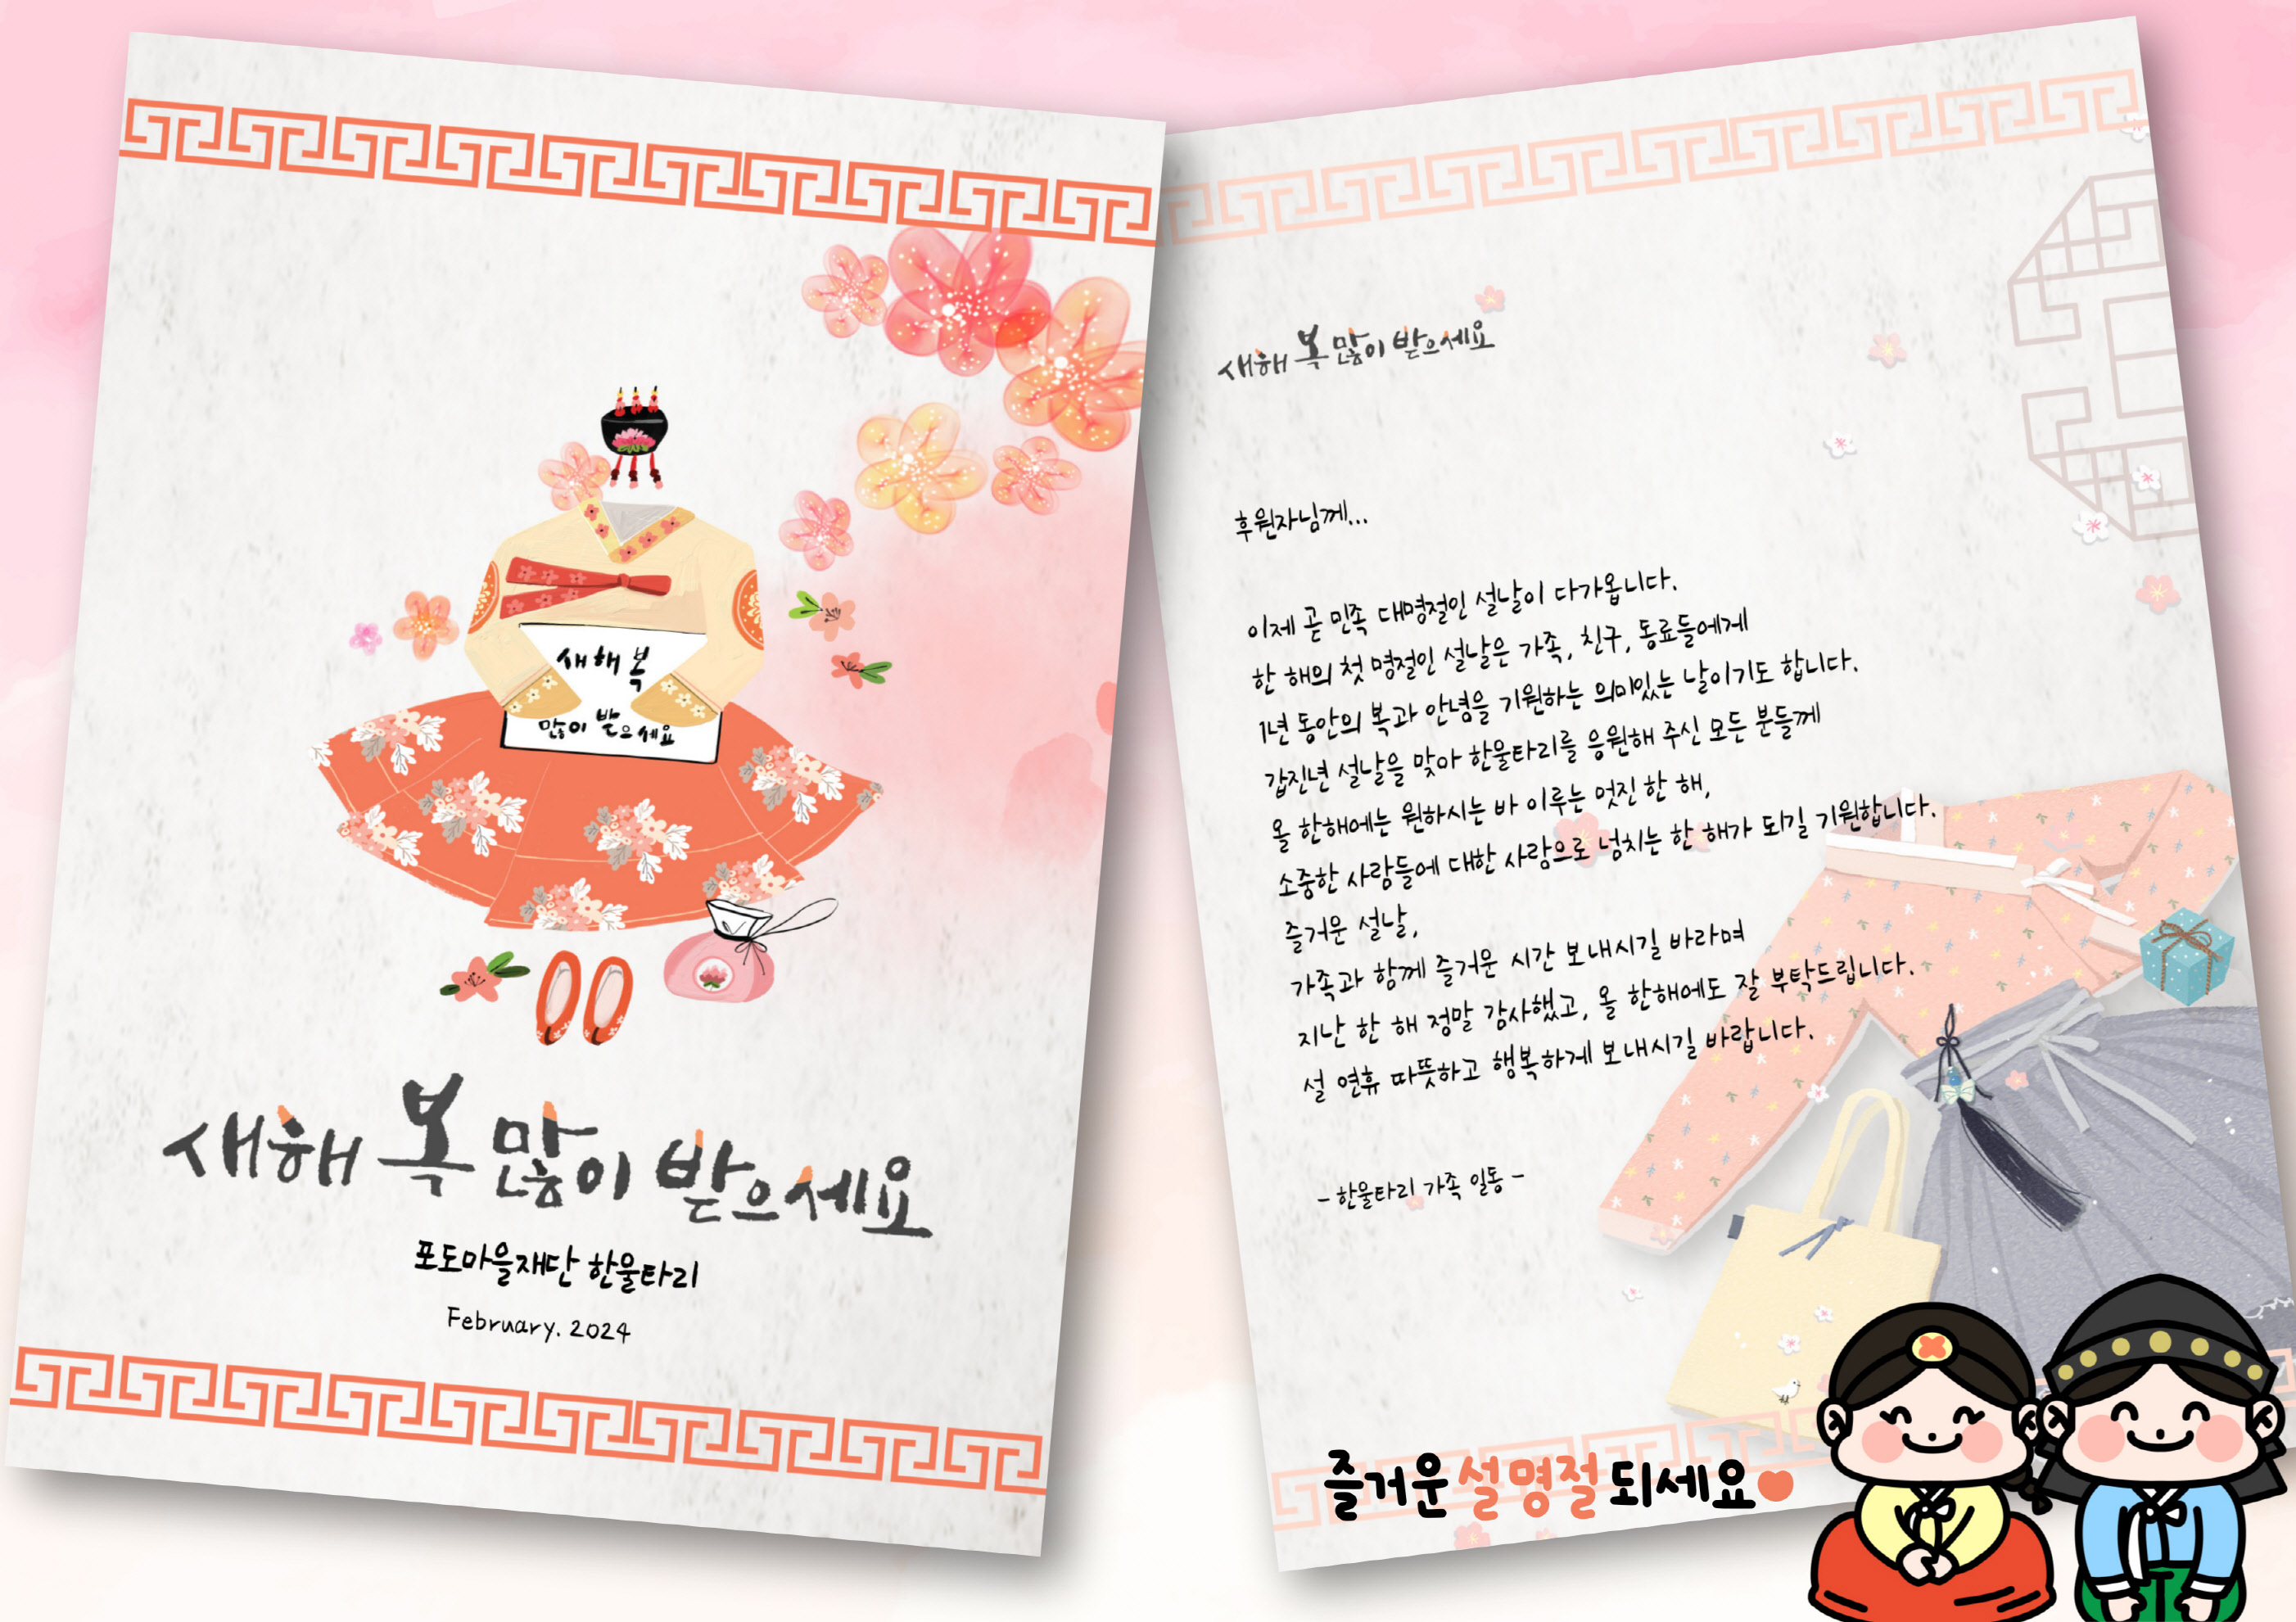 새해 복
많이 받으세요
새해 복 많이 받으세요
포도마을재단 한울타리
February. 2024
새해 복 많이 받으세요
후원자님께...
이제 곧 민족 대명절인 설날이 다가옵니다.
한 해의 첫 명절인 설날은 가족, 친구, 동료들에게
1년 동안의 복과 안녕을 기원하는 의미있는 날이기도 합니다.
갑진년 설날을 맞아 한울타리를 응원해 주신 모든 분들께
올 한해에는 원하시는 바 이루는 멋진 한 해,
소중한 사람들에 대한 사람으로 넘치는 한 해가 되길 기원합니다.
즐거운 설날,
가족과 함께 즐거운 시간 보내시길 바라며
지난 한 해 정말 감사했고, 올 한해에도 잘 부탁드립니다.
설 연휴 따뜻하고 행복하게 보내시길 바랍니다.
- 한울타리 가족 일동 -
즐거운 설명절 되세요